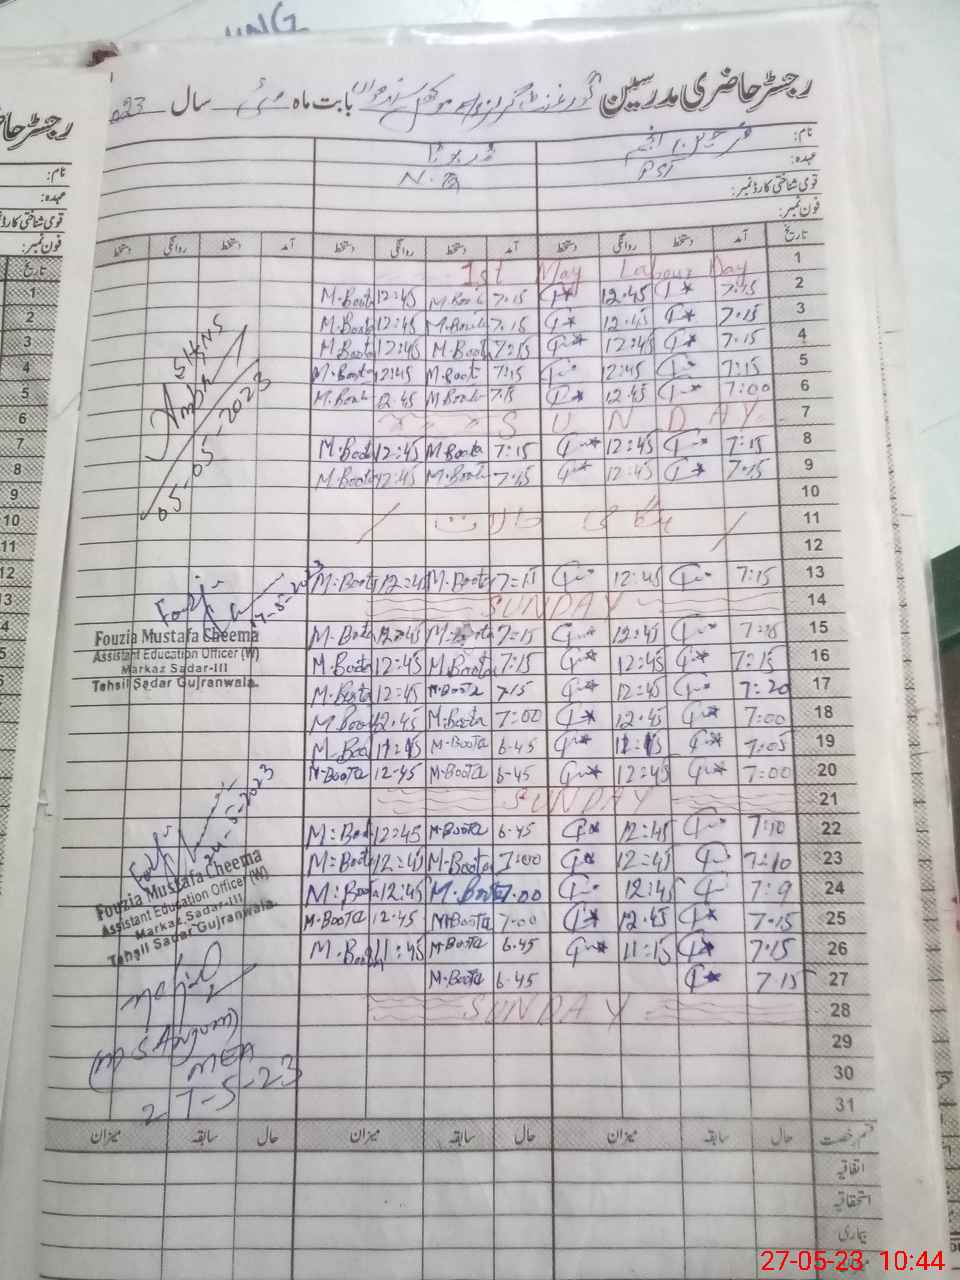 رجسٹر حاضری مدرسین گورنمنٹ گرلز بابت ماہ مئی سال 2023
نام:
عہدہ: PST N.Q
قومی شناختی کارڈ نمبر:
فون نمبر:
تاریخ آمد دستخط روانگی دستخط آمد دستخط روانگی دستخط آمد دستخط روانگی دستخط
1 1st May Labour Day
2 7:15 12:45 7:15 M.Boota 12:45 M.Boota
3 7:15 12:45 7:15 M.Boota 12:45 M.Boota
4 7:15 12:45 7:15 M.Boota 12:45 M.Boota
5 7:15 12:45 7:15 M.Boota 12:45 M.Boota
6 7:00 12.45 7:15 M.Boota 12.45 M.Boota
7 SUNDAY
8 7:15 12:45 7:15 M.Boota 12:45 M.Boota
9 7:15 12:45 7:15 M.Boota 12:45 M.Boota
10
11 ہنگامی حالات
12
13 7:15 12:45 7=15 M.Boota 12:45 M:Boota
14 SUNDAY
15 12:45 7:15 M.Boota 12:45 M.Boota
16 7:15 12:45 7:15 M.Boota 12:45 M.Boota
17 7:20 12:45 7:15 M.Boota 12:45 M.Boota
18 7:00 12.45 7:00 M.Boota 12.45 M.Boota
19 7:05 6-45 M.Boota M.Boota
20 7:00 12:45 6-45 M.Boota 12-45 M.Boota
21 SUNDAY
22 7:10 12:45 6-45 M.Boota 12:45 M:Boota
23 7:10 12:45 7:00 M.Boota 12:45 M:Boota
24 7:9 12:45 7.00 M.Boota 12:45 M:Boota
25 7.15 12.45 7.00 M.Boota 12-45 M.Boota
26 7.15 11:15 6.45 M.Boota 11:45 M.Boota
27 7.15 6.45 M.Boota
28 SUNDAY
29
30
31
قسم رخصت حال سابقہ میزان حال سابقہ میزان حال سابقہ میزان
اتفاقیہ
استحقاقیہ
بیماری
05-05-2023
17-5-2023
Fouzia Mustafa Cheema
Assistant Education Officer (W)
Markaz Sadar-III
Tehsil Sadar Gujranwala.
24-5-2023
Fouzia Mustafa Cheema
Assistant Education Officer (W)
Markaz Sadar-III
Tehsil Sadar Gujranwala.
(M S Anjum)
MEA
27-5-23
رجسٹر
نام:
عہدہ:
قومی شناختی کارڈ
فون نمبر:
تاریخ
1
2
3
4
5
6
7
8
9
10
11
12
27-05-23 10:44